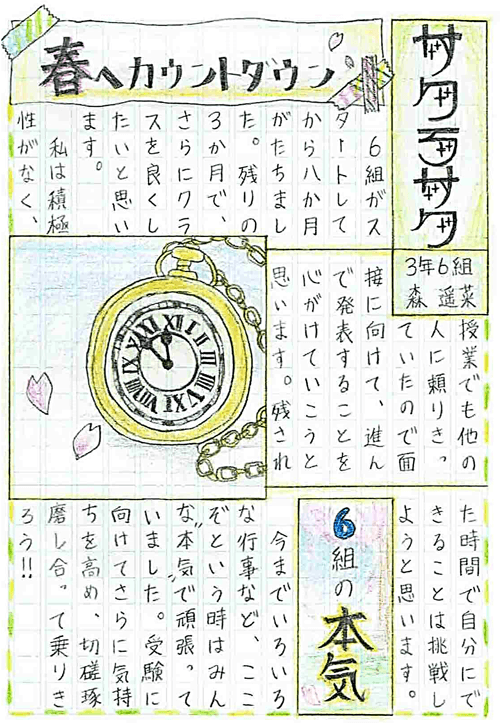 サクラサク
3年6組
森 遥菜
春へカウントダウン
6組がス
タートして
から八か月
がたちまし
た。残りの
3か月で、
さらにクラ
スを良くし
たいと思い
ます。
私は積極
性がなく、
授業でも他の
人に頼りきっ
ていたので面
接に向けて、進ん
で発表することを
心がけていこうと
思います。残され
た時間で自分にで
きることは挑戦し
ようと思います。
6組の本気
今までいろいろ
な行事など、ここ
ぞという時はみん
な"本気"で頑張って
いました。受験に
向けてさらに気持
ちを高め、切磋琢
磨し合って乗りき
ろう!!